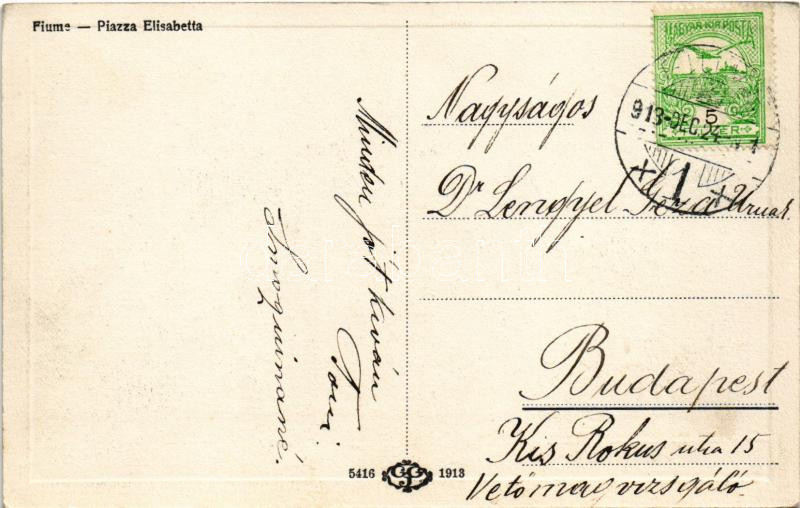 Fiume — Piazza Elisabetta
MAGYAR KIR. POSTA
5
913-DEC.24
1
Nagyságos
Dr Lengyel Géza Úrnak
Budapest
Kis Rokus utca 15
Vetőmagvizsgáló
Minden jót kíván
5416 1913